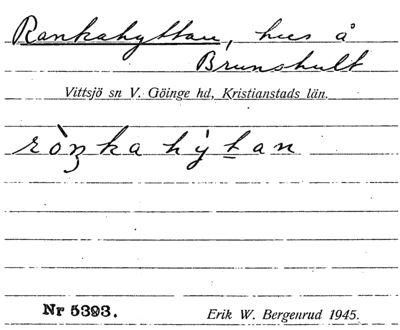 Rankahyttan, hus å
Brunshult
Vittsjö sn V. Göinge hd, Kristianstads län.
ròŋka hẏtan
Nr 5393.
Erik W. Bergenrud 1945.